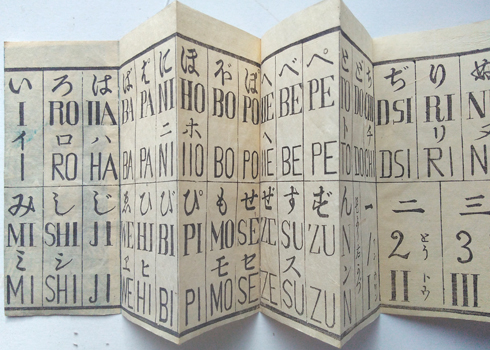 い ろ は ば ぱ に ほ ぼ ぽ へ べ ぺ と ど ち ぢ り ぬ
I RO HA BA PA NI HO BO PO HE BE PE TO DO CHI DSI RI
イ ロ ハ ニ ホ ヘ ト チ リ
I RO HA BA PA NI HO BO PO HE BE PE TO DO CHI DSI RI
み し じ ゑ ひ び ぴ も せ ぜ す ず ん 一 二 三
MI SHI JI WE HI BI PI MO SE ZE SU ZU N 1 2 3
ミ シ ヱ ヒ モ セ ス ン
MI SHI JI WE HI BI PI MO SE ZE SU ZU N I II III